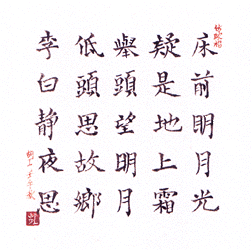 床前明月光
疑是地上霜
舉頭望明月
低頭思故鄉
李白靜夜思